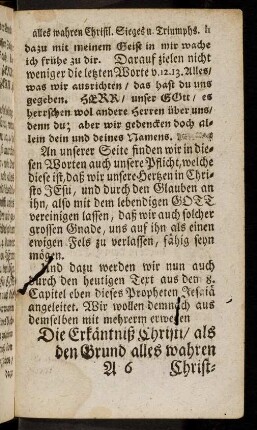 alles wahren Christl. Sieges u. Triumphs.
dazu mit meinem Geist in mir wache
ich frühe zu dir. Darauf zielen nicht
weniger die letzten Worte v. 12. 13. Alles/
was wir ausrichten/ das hast du uns
gegeben. HERR/ unser GOtt/ es
herrschen wol andere Herren über uns/
denn du; aber wir gedencken doch al-
lein dein und deines Namens.
An unserer Seite finden wir in die-
sen Worten auch unsere Pflicht, welche
diese ist, daß wir unsere Hertzen in Chri-
sto JEsu, und durch den Glauben an
ihn, also mit dem lebendigen GOTT
vereinigen lassen, daß wir auch solcher
grossen Gnade, uns auf ihn als einen
ewigen Fels zu verlassen, fähig seyn
mögen.
Und dazu werden wir nun auch
durch den heutigen Text aus dem 8.
Capitel eben dieses Propheten Jesaiä
angeleitet. Wir wollen demnach aus
demselben mit mehrerm erwegen
Die Erkäntniß Christi/ als
den Grund alles wahren
A 6 Christ-